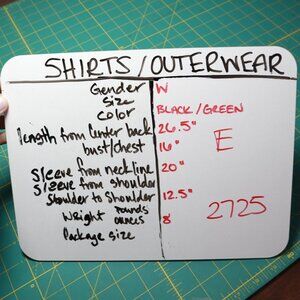 SHIRTS/OUTERWEAR
Gender W
Size
Color BLACK/GREEN
length from center back 26.5"
bust/chest 16"
E
Sleeve from neckline 20"
Sleeve from shoulder
Shoulder to Shoulder 12.5"
2725
Weight pounds
ounces 8
Package size